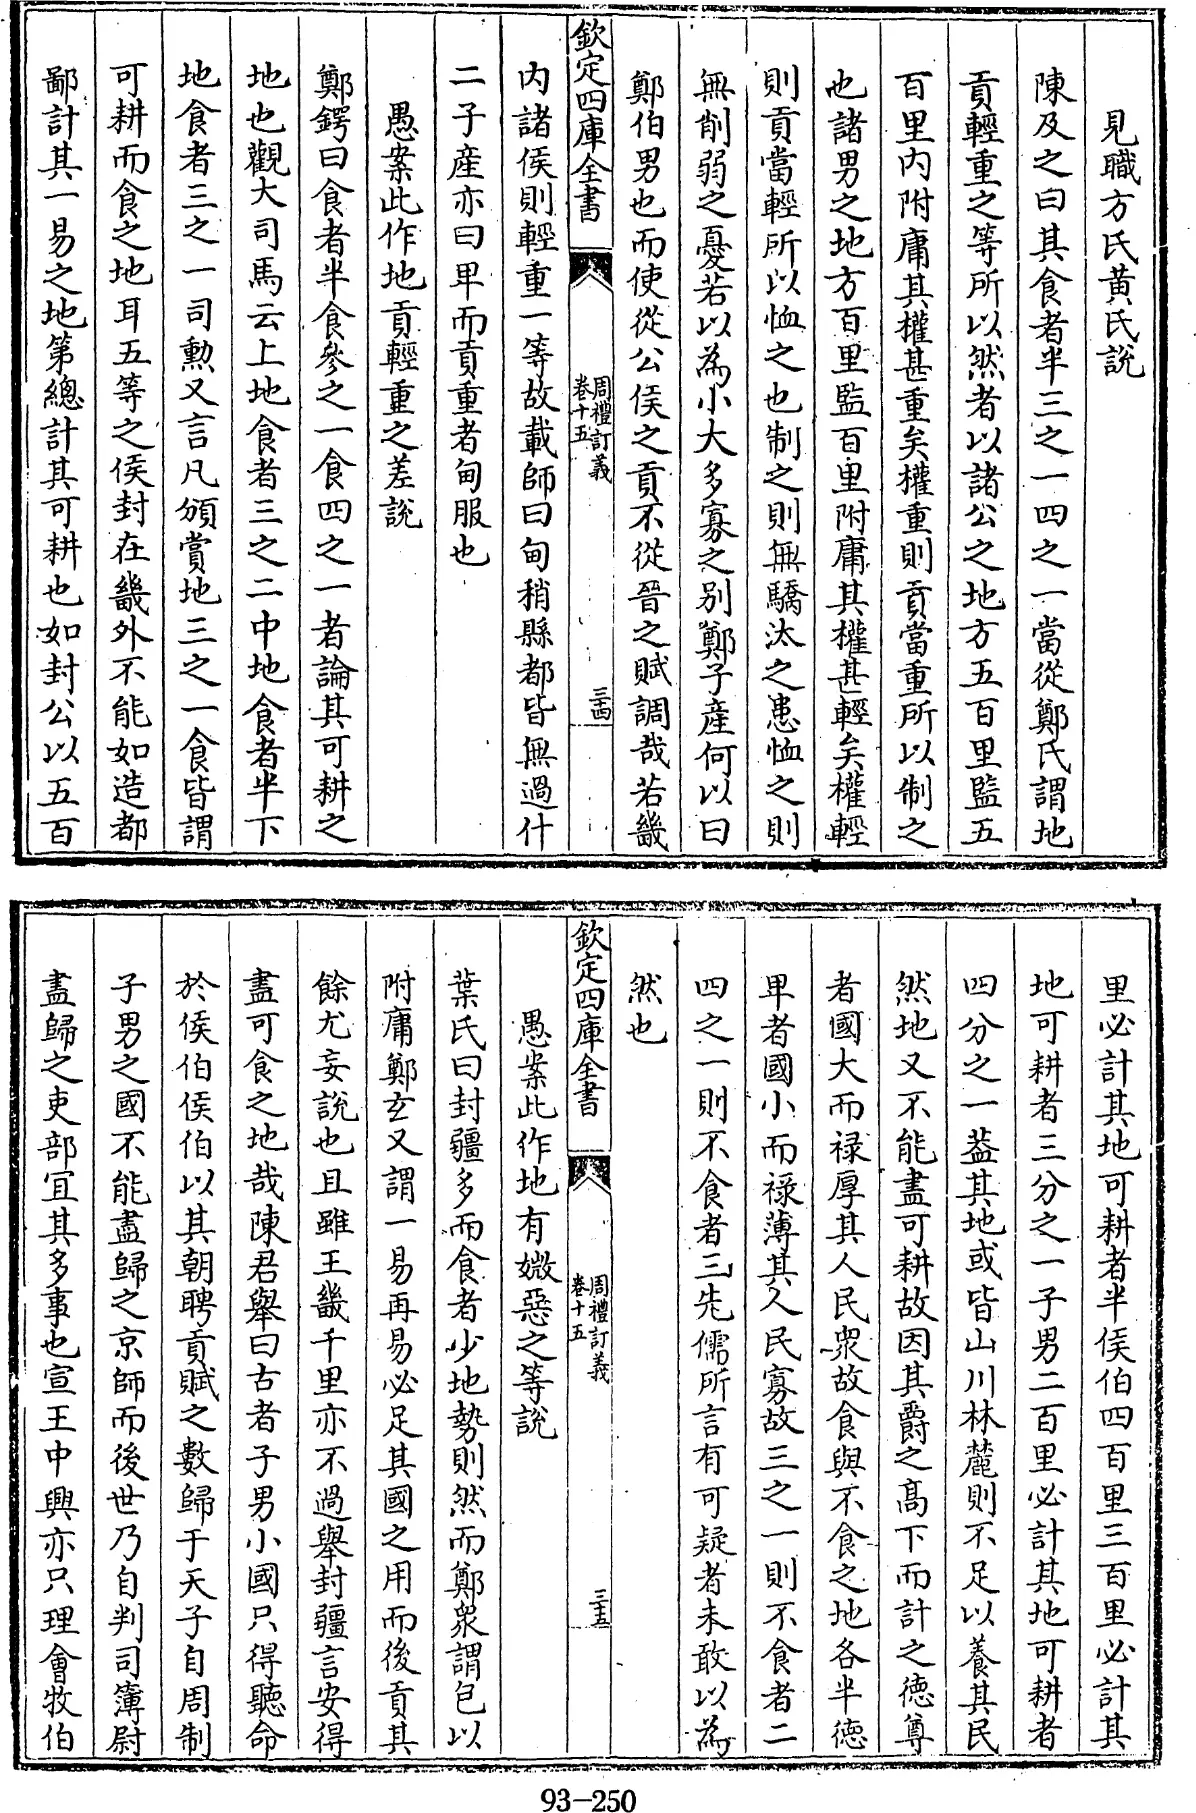 見職方氏黄氏說
陳及之曰其食者半三之一四之一當從鄭氏謂地
貢輕重之等所以然者以諸公之地方五百里監五
百里内附庸其權甚重矣權重則貢當重所以制之
也諸男之地方百里監百里附庸其權甚輕矣權輕
則貢當輕所以恤之也制之則無驕汰之患恤之則
無削弱之憂若以為小大多寡之别鄭子産何以曰
鄭伯男也而使從公侯之貢不從晉之賦調哉若畿
欽定四庫全書
周禮訂義
卷十五
三四
内諸侯則輕重一等故載師曰甸稍縣都皆無過什
二子産亦曰卑而貢重者甸服也
愚案此作地貢輕重之差說
鄭鍔曰食者半食參之一食四之一者論其可耕之
地也觀大司馬云上地食者三之二中地食者半下
地食者三之一司勲又言凡頒賞地三之一食皆謂
可耕而食之地耳五等之侯封在畿外不能如造都
鄙計其一易之地第總計其可耕也如封公以五百
里必計其地可耕者半侯伯四百里三百里必計其
地可耕者三分之一子男二百里必計其地可耕者
四分之一葢其地或皆山川林麓則不足以養其民
然地又不能盡可耕故因其爵之高下而計之德尊
者國大而禄厚其人民衆故食與不食之地各半德
卑者國小而禄薄其人民寡故三之一則不食者二
四之一則不食者三先儒所言有可疑者未敢以為
然也
欽定四庫全書
周禮訂義
卷十五
三五
愚案此作地有媺惡之等說
葉氏曰封疆多而食者少地勢則然而鄭衆謂包以
附庸鄭玄又謂一易再易必足其國之用而後貢其
餘尤妄說也且雖王畿千里亦不過舉封疆言安得
盡可食之地哉陳君舉曰古者子男小國只得聽命
於侯伯侯伯以其朝聘貢賦之數歸于天子自周制
子男之國不能盡歸之京師而後世乃自判司簿尉
盡歸之吏部宜其多事也宣王中興亦只理會牧伯
93-250